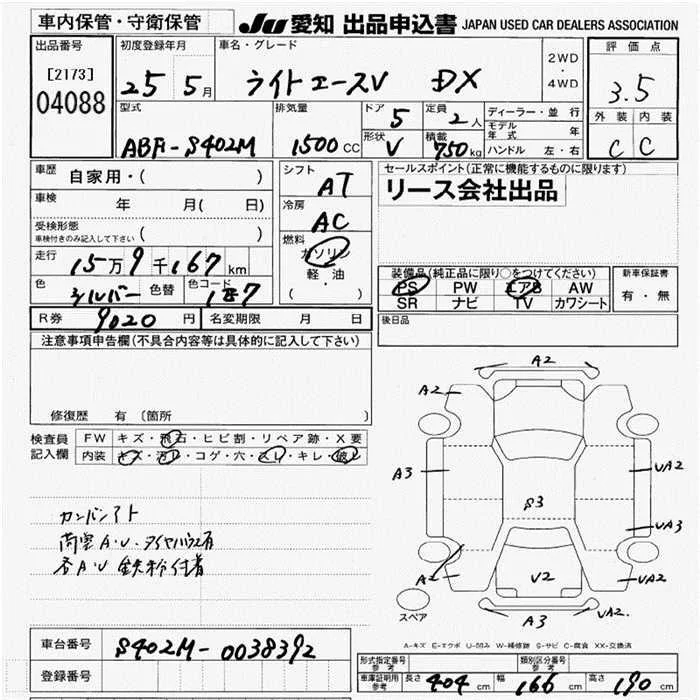 車内保管・守衛保管 JU 愛知 出品申込書 JAPAN USED CAR DEALERS ASSOCIATION
出品番号 初度登録年月 車名・グレード 2WD・4WD 評価点
[2173]
04088 25 5月 ライトエースV DX 3.5
型式 排気量 ドア 5 定員 2人 ディーラー・並行 外装 内装
ABF-S402M 1500CC 形状 V 積載 750kg モデル年式 年 C C
ハンドル 左・右
車歴 自家用・( ) シフト AT セールスポイント(正常に機能するものに限ります)
車検 年 月( 日) 冷房 AC リース会社出品
受検形態
車検付きのみ記入して下さい ( )
燃料 ガソリン
走行 15万9千167km 軽・油 装備品(純正品に限り○をつけてください) 新車保証書
色 シルバー 色替 色コード 1E7 ( ) PS PW エアB AW 有・無
SR ナビ TV カワシート
R券 9020円 名変期限 月 日 後日品
注意事項申告欄(不具合内容等は具体的に記入して下さい)
修復歴 有 〔箇所
検査員 FW キズ・飛石・ヒビ割・リペア跡・X要
記入欄 内装 キズ・汚レ・コゲ・穴・スレ・キレ・破レ
カンバンアト
荷室A.U.タイヤハウス有
各A.U 鉄粉付着
A2
A2
A3 UA2
S3
UA3
A2 V2 UA2
A3 UA2.
スペア
A-キズ E-エクボ U-凹み W-補修跡 S-サビ C-腐食 XX-交換済
車台番号 S402M-0038392
登録番号
形式指定番号 参考 類別区分番号 参考
車庫証明用 参考 長さ 404cm 幅 166cm 高さ 190cm